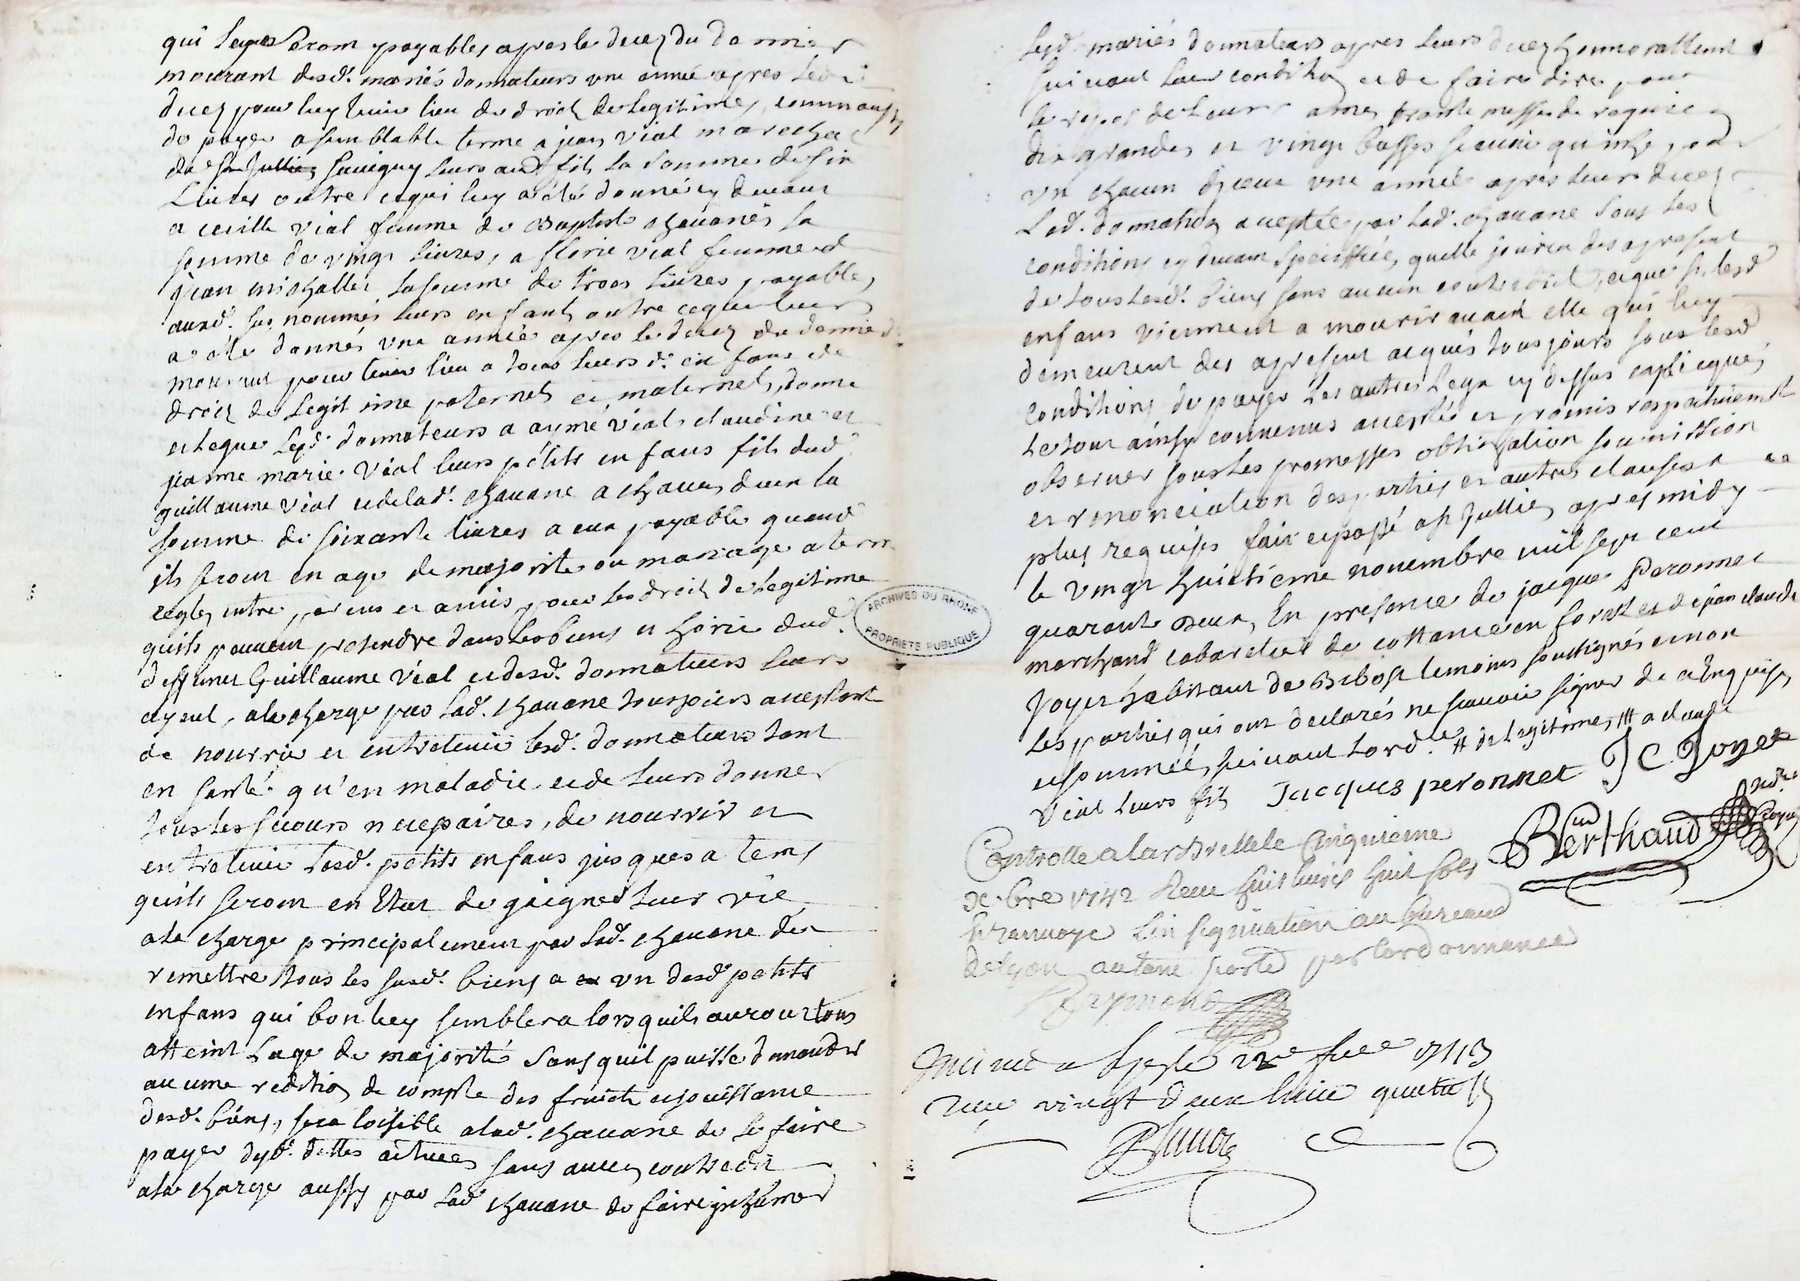 qui legas seront payables apres le decez du dernier
mourant desd. mariés donnateurs une année apres led.
decez pour luy tenir lieu de droit de legitimes, comm'aussy
de payer a semblable terme a jean vial marechal
de St Jullien Sauvigny leurs autre fils la somme de six
Livres outre ce qui luy a été donné cy devant
a cecille vial femme de Baptiste chavanés la
somme de vingt livres, a florie vial femme de
jean michallet la somme de trois livres payables
ausd. sus nommés leurs enfants outre ce que leur
a été donnés une année apres le decez du dernier
mourant pour tenir lieu a tous leurs d. enfans de
droit de legitime paternels et maternels, donne
et legue lesd. donnateurs a aymé vial, claudine et
jeanne marie vial leurs petits enfans fils dud.
guillaume vial et de lad. chavane a chacun d'eux la
somme de soixante livres a eux payable quand
ils seront en age de majorité ou mariage a terme
regles entre parens et amis pour les droit de legitime
quils peuvent pretendre dans les biens et hoirie dud.
deffunct Guillaume vial et desd. donnateurs leurs
ayeul, a la charge par lad. chavane toujours acceptant
de nourrir et entretenir lesd. donnateurs tant
en santé qu'en maladie et de leurs donner
tous les secours necessaires, de nourrir et
entretenir lesd. petits enfans jusques a tems
quils seront en Etat de gaigner leur vie
a la charge principalement par lad. chavane de
remettre tous les susd. biens a un desd. petits
enfans qui bon luy semblera lors quils auront tous
atteint l'age de majorité sans quil puisse demander
aucune reddition de compte des fruits et jouissance
desd. biens, sera loisible a lad. chavane de se faire
payer desd. dettes actives sans aucun contredit
a la charge aussy par lad. chavane de faire inhumer
lesd. mariés donnateurs apres leurs decez honnorablement
suivant leur condition et de faire dire pour
le repos de leurs ames trante messes de requiem
dix grandes et vingt basses scavoir quinze pour
un chacun d'iceux une année apres leurs decez
Lad. donnation acceptée par lad. chavane sous les
conditions cy devant specifiées, quelle jouira des apresent
de tous lesd. biens sans aucun contredit, et que si lesd.
enfans viennent a mourir avant elle qui luy
demeurent des apresent acquis tousjours sous lesd.
conditions de payer les autres legs cy dessus expliqués,
Le tout ainsy convenus acceptés et promis respectivement
observer sous les promesses obligation soumission
et renonciation des parties et autres clauses a ce
plus requises fait et passé a St Jullien apres midy
le vingt huitieme novembre mil sept cent
quarante deux, En presence de jacques Peronnet
marchand cabaretier de cottance en forest et de jean claude
Joyet habitant de Bibost temoins soussignés et non
les parties qui ont declarés ne scavoir signer de ce Enquises
et sommées suivant lord. # de legitime, ## a claude
vial leurs fils Jacques peronnet J C Joyet
Berthaud nore Royal
Controlle a la Bresle le Cinquieme
Xbre 1742 Receu huit livres huit sols
et renvoye L'insinuation au bureau
de Lyon autant porté par lordonnance
Raymond
Insinué a 22e 1743
receu vingt deux livres quatre s